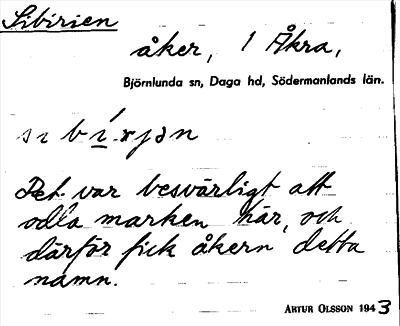 Sibirien
åker, 1 Åkra,
Björnlunda sn, Daga hd, Södermanlands län.
Det var besvärligt att
odla marken här, och
därför fick åkern detta
namn.
ARTUR OLSSON 1943